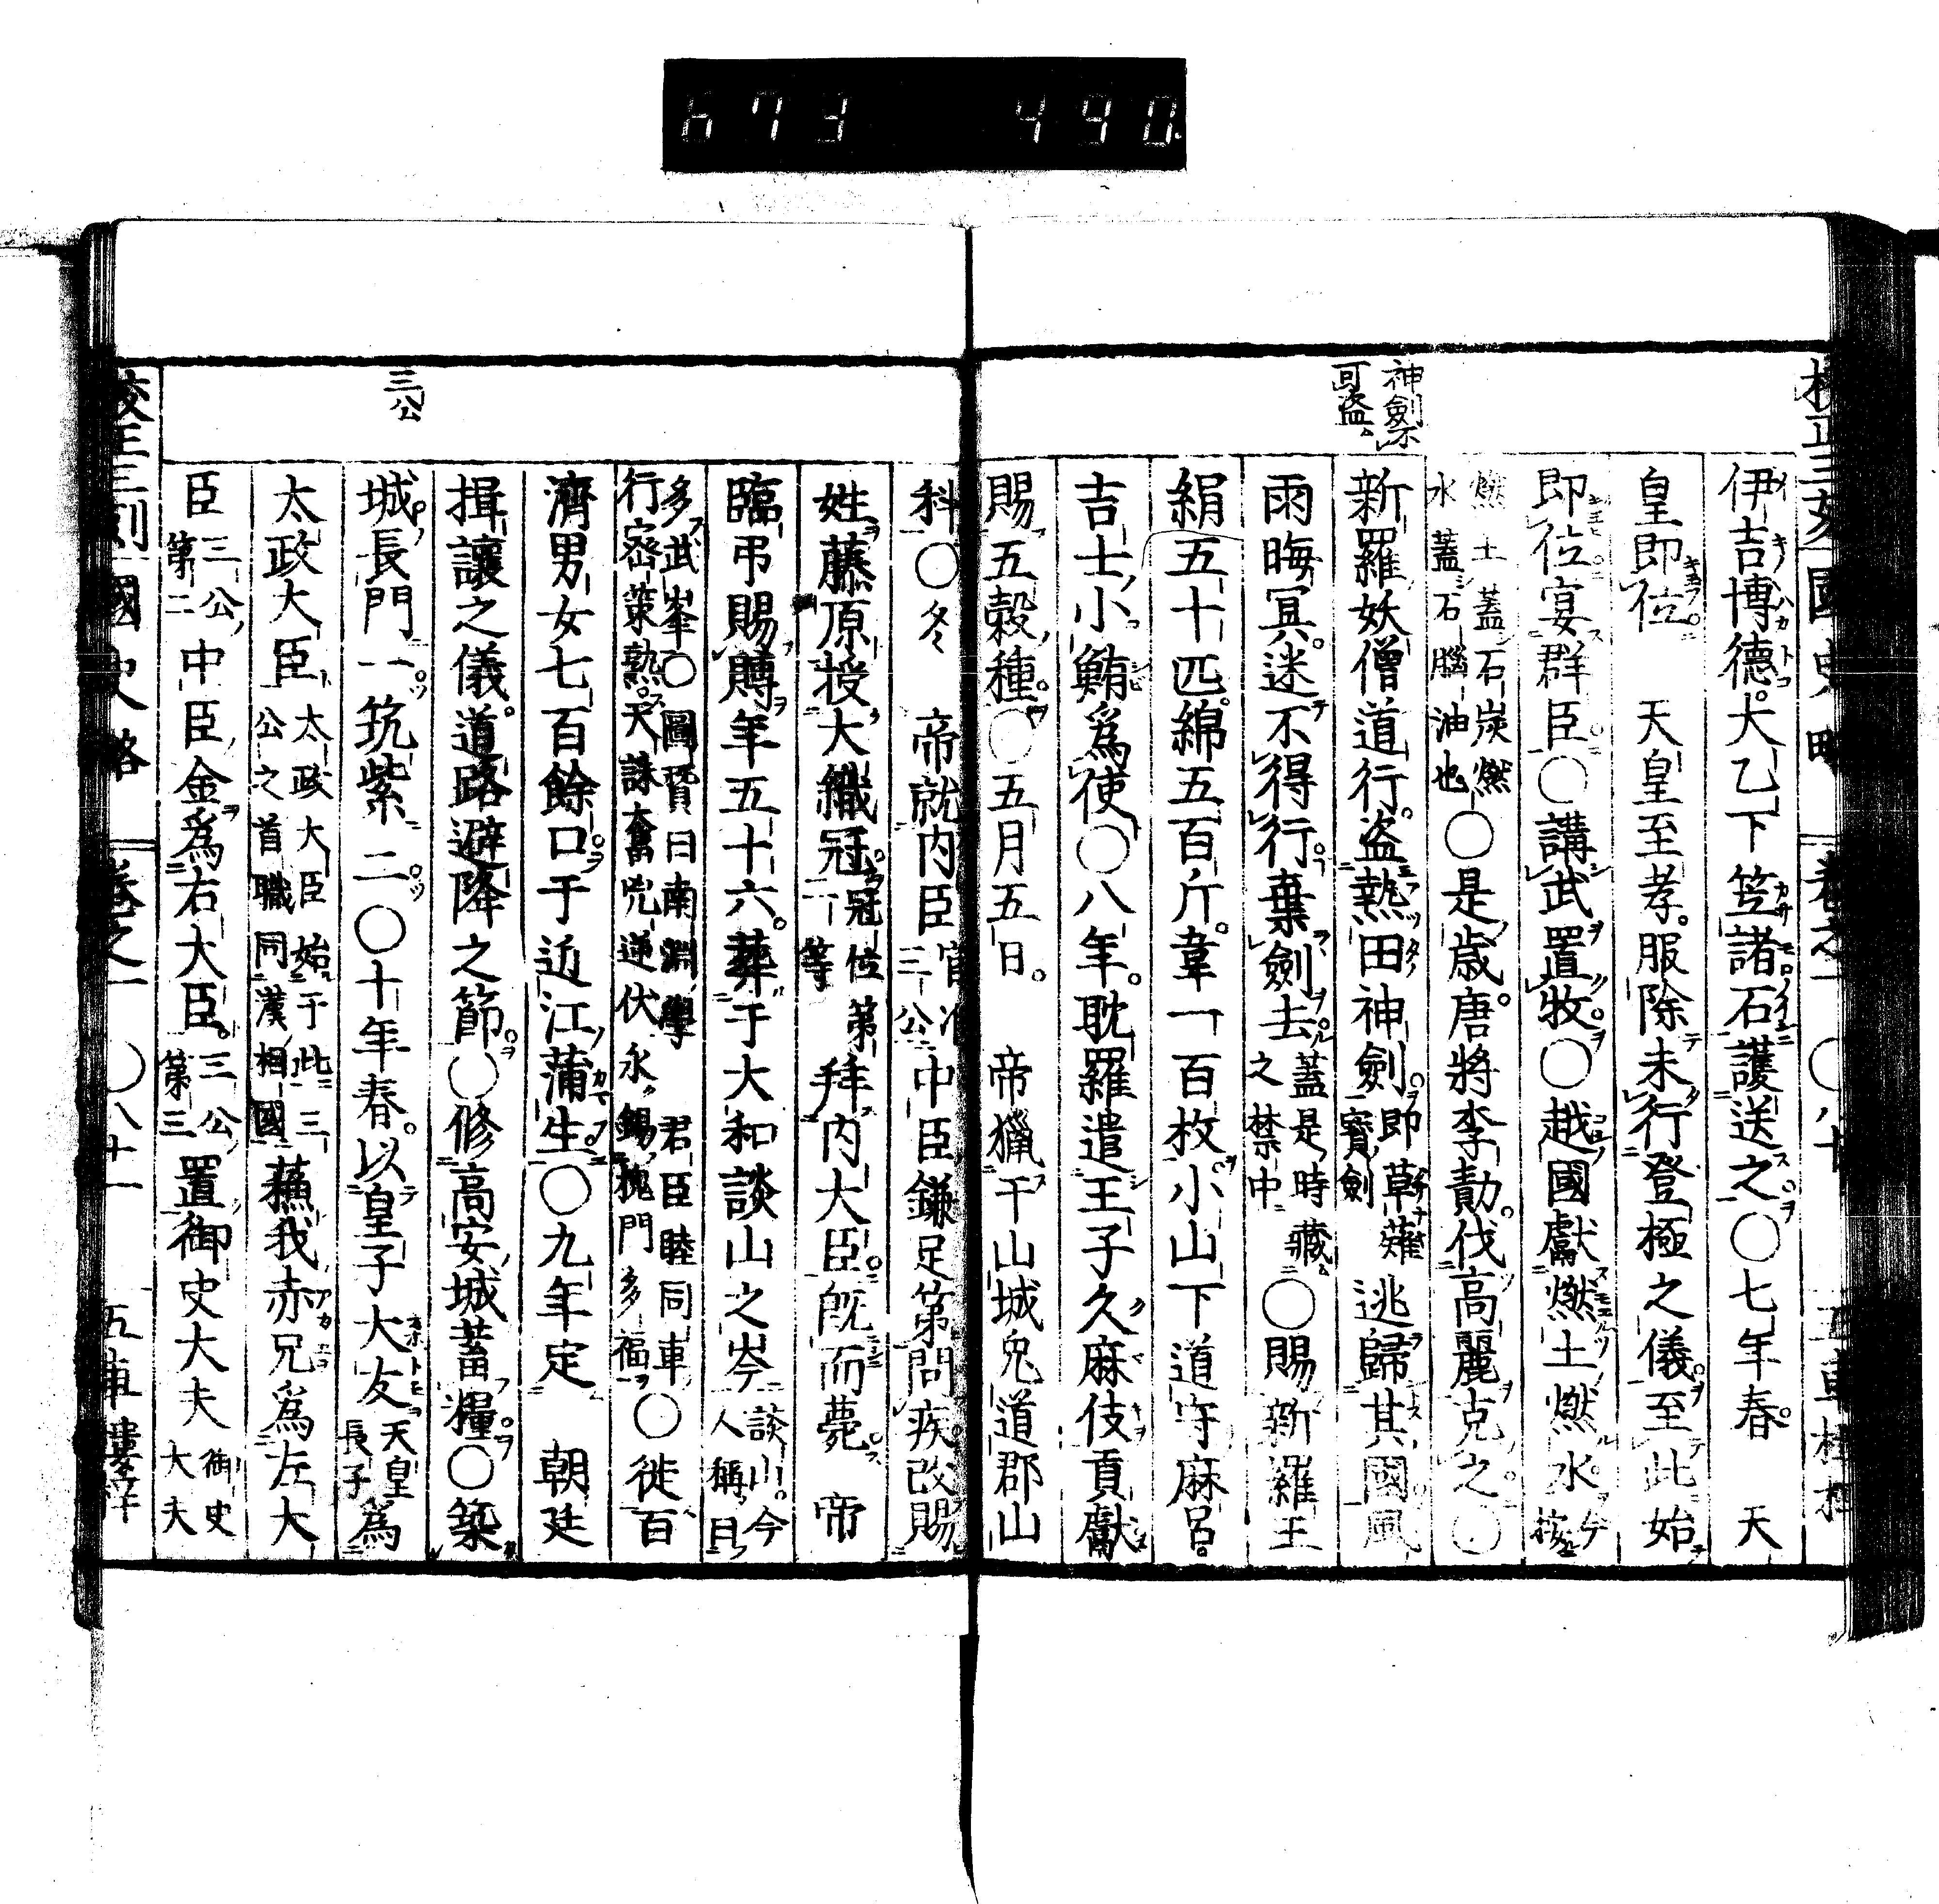 673 490
神劍不
可盜
伊吉博德大乙下笠諸石護送之○七年春 天
皇即位 天皇至孝服除未行登極之儀至此始
即位宴群臣○講武置牧○越國獻燃土燃水 今按
燃土蓋石炭燃
水蓋石腦油也 ○是歲唐將李勣伐高麗克之○
新羅妖僧道行盜熱田神劍 即草薙
寶劍 逃歸其國風
雨晦冥迷不得行棄劍去 蓋是時藏
之禁中 ○賜新羅王
絹五十匹綿五百斤韋一百枚小山下道守麻呂
吉士小鮪爲使○八年耽羅遣王子久麻伎貢獻
賜五穀種○五月五日 帝獵于山城兔道郡山
三公
科○冬 帝就内臣 官准
三公 中臣鎌足第問疾改賜
姓藤原授大織冠 冠位第
一等 拜内大臣既而薨 帝
臨弔賜賻年五十六葬于大和談山之岑 談山今
人稱曰
多武峯○圖贊曰南淵學 君臣睦同車
行密策熟天誅奮兇逆伏永錫槐門多福 ○徙百
濟男女七百餘口于近江蒲生○九年定 朝廷
揖讓之儀道路避降之節○修高安城蓄糧○築
城長門一筑紫二○十年春以皇子大友 天皇
長子 爲
太政大臣 太政大臣始于此三
公之首職同漢相國 蘇我赤兄爲左大
臣 三公
第二 中臣金爲右大臣 三公
第三 置御史大夫 御史
大夫
國史略 卷之一 ○八十一 五車樓梓